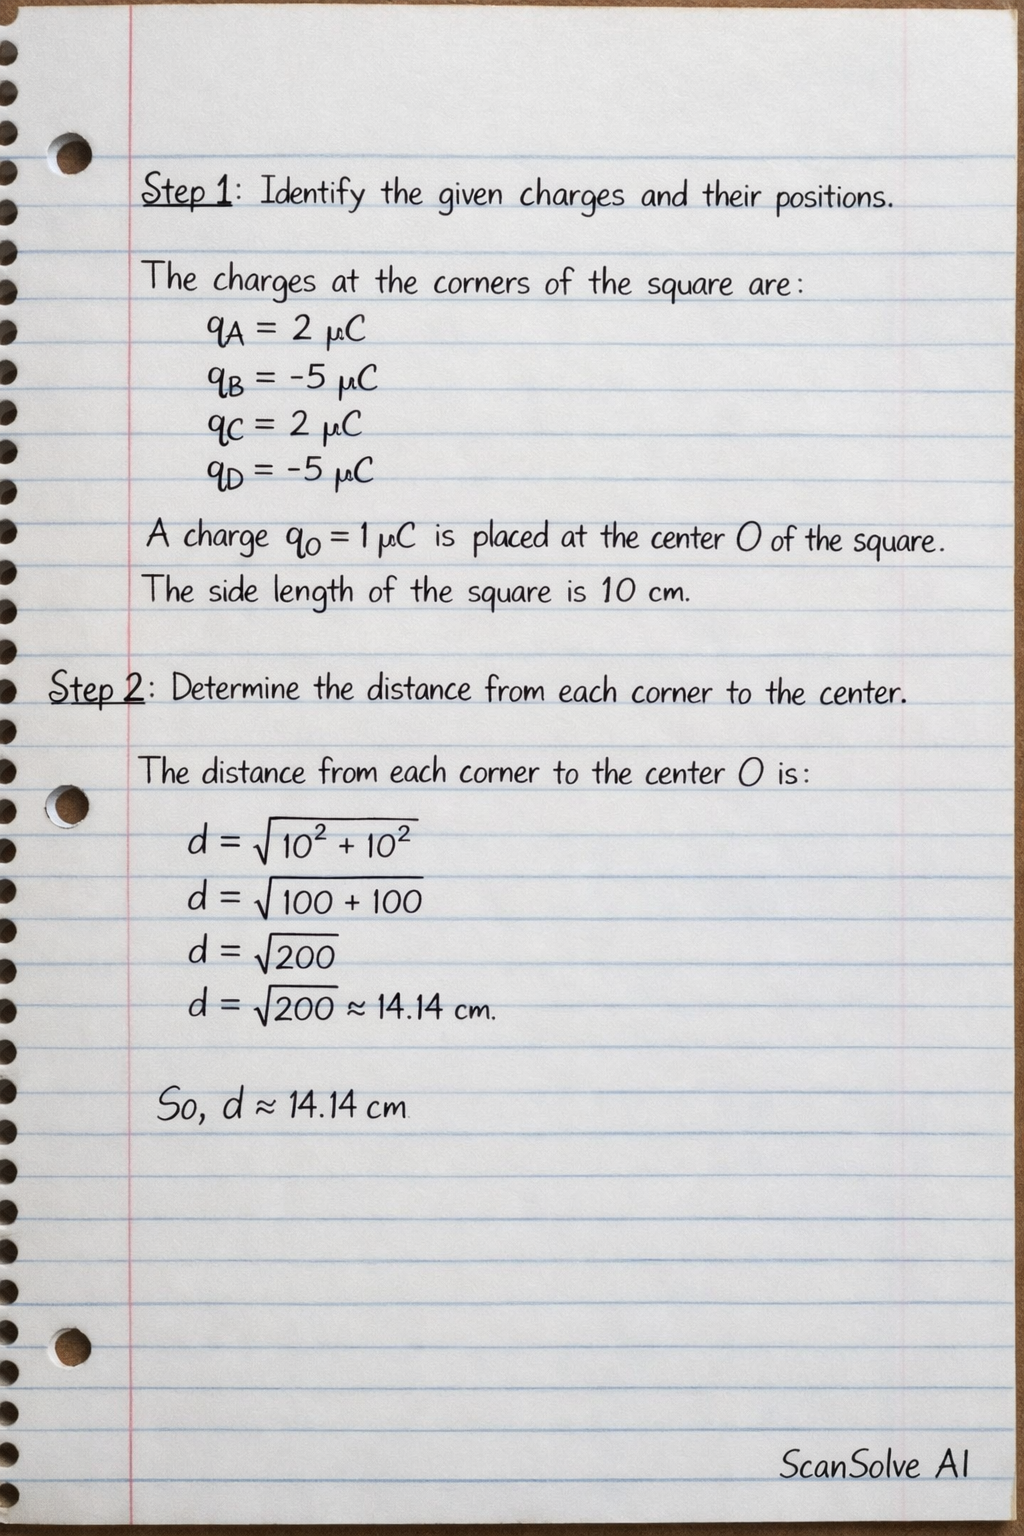 Step 1: Identify the given charges and their positions.
The charges at the corners of the square are:
qA = 2 μC
qB = -5 μC
qC = 2 μC
qD = -5 μC
A charge qO = 1 μC is placed at the center O of the square.
The side length of the square is 10 cm.
Step 2: Determine the distance from each corner to the center.
The distance from each corner to the center O is:
d = √10² + 10²
d = √100 + 100
d = √200
d = √200 ≈ 14.14 cm.
So, d ≈ 14.14 cm
ScanSolve AI